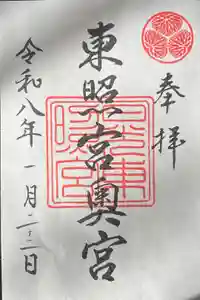 奉拝
東照宮奥宮
令和八年一月二十二日